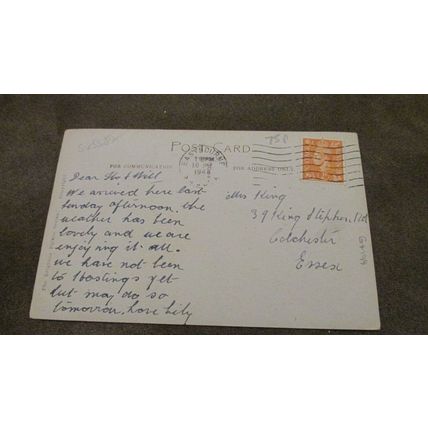 SUSSEX
75p
POST CARD
EASTBOURNE
1948
FOR COMMUNICATION
FOR ADDRESS ONLY
Dear & Will
We arrived here last
sunday afternoon. the
weather has been
lovely and we are
enjoying it all.
we have not been
to Hastings yet
but may do so
tomorrow, love Lily
Mrs King
39 King Stephen Rd
Colchester
Essex